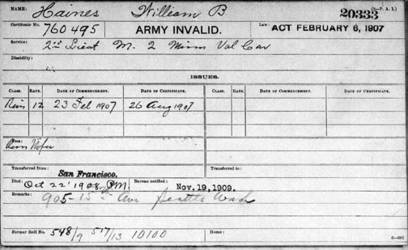 Haines William B. 20333
Certificate No. 760495 ARMY INVALID. Law, ACT FEBRUARY 6, 1907
Service: 2nd Lieut M. 2 Minn Vol Cav
Disability:
ISSUES.
CLASS. RATE. DATE OF COMMENCEMENT. DATE OF CERTIFICATE. CLASS. RATE. DATE OF COMMENCEMENT. DATE OF CERTIFICATE.
Reis 12 23 Feb 1907 26 Aug 1907
From:
Transferred from: Transferred to:
San Francisco.
Died: Oct 22 1909 Bureau notified: Nov. 19, 1909.
Remarks: 905-15th Ave Seattle Wash
Former Roll No. 548/9 517/13 10100